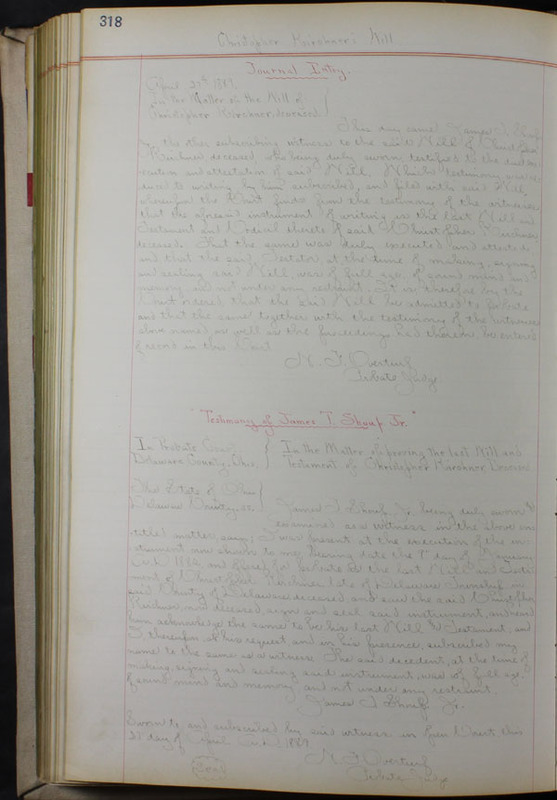 318
Christopher Kirchner's Will
Journal Entry.
April 1889.
In the Matter of the Will of
Christopher Kirchner, deceased
This day came James T. Shoup
the other subscribing witness to the said Will of Christopher
Kirchner deceased, who being duly sworn, testified to the due
execution and attestation of said Will. Which testimony was
to writing by him subscribed, and filed with said Will,
the Court finds from the testimony of the witnesses
that the aforesaid instrument of writing is the last Will and
Testament and thereto of said Christopher Kirchner
deceased. That the same was duly executed and attested
and that the said Testator at the time of making, signing
and sealing said Will, was of full age, of sound mind and
memory and not under any restraint. It is therefore by the
Court ordered that the said Will be admitted to probate
and that the same together with the testimony of the witnesses
above named as well as the proceedings had therein be entered
of record in this Court
N. F. Overturf
Probate Judge
"Testimony of James T Shoup Jr."
In Probate Court
Delaware County, Ohio.
In the Matter of proving the last Will and
Testament of Christopher Kirchner Deceased
The State of Ohio
Delaware County, ss.
James T Shoup Jr. being duly sworn &
examined as a witness in the above
entitled matter, says; I was present at the execution of the
instrument now shown to me, bearing date the day of
A.D. and offered for probate as the last Will and Testament
of Christopher Kirchner late of Delaware Township in
said County of Delaware deceased, and saw the said Christopher
Kirchner, now deceased, sign and seal said instrument, and heard
him acknowledge the same to be his last Will & Testament, and
I thereupon, at his request, and in his presence, subscribed my
name to the same as a witness. The said decedent, at the time of
making, signing and sealing said instrument, was of full age,
of sound mind and memory and not under any restraint.
James T Shoup Jr.
Sworn to, and subscribed by said witness in open Court this
day of April A.D. 1889
N. F. Overturf
Seal
Probate Judge